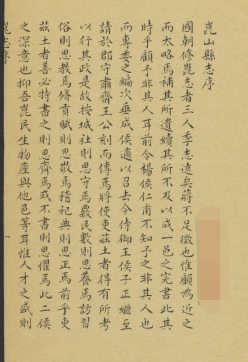 崑山縣志序
國朝修崑志者三人季志遠矣蔣不足徵也惟顧為近之
而太略焉補其所遺續其所不及以成一邑之完書此其
時乎顧予非其人耳前令楊侯仁甫不知予之非其人也
而專委之編次垂成侯適以召去今侍御王侯子正繼至
請於郡守肅齋王公刻而傳焉將使吏茲土者得有所考
以行其政是故按城社則思守焉覈民數則思養焉訪習
俗則思教焉脩貢賦則思敬焉稽祀典則思正焉前乎吏
茲土者善必特書之則思齊焉或不書則思懼焉此二侯
之深意也抑吾崑民生物產與他邑等耳惟人才之盛則